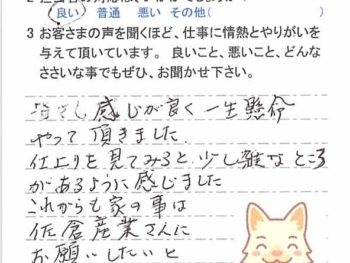 良い 普通 悪い その他( )
3 お客さまの声を聞くほど、仕事に情熱とやりがいを
与えて頂いています。 良いこと、悪いこと、どんな
ささいな事でもぜひ、お聞かせ下さい。
皆さし感じが良く一生懸命
やって頂きました
仕上りを見てみると少し雑なところ
があるように感じました
これからも家の事は
佐倉産業さんに
お願いしたいと